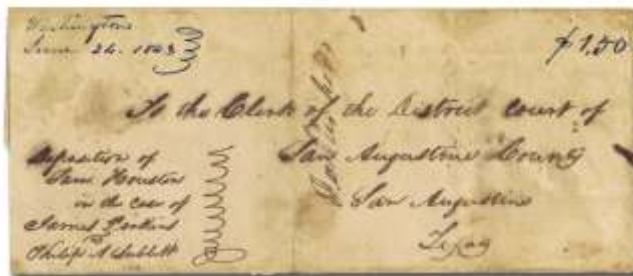 Washington
June 24. 1843
$1.50
To the Clerk of the District Court of
San Augustine County
San Augustine
Texas
Deposition of
Sam Houston
in the case of
James Perkins
vs
Philip A Sublett